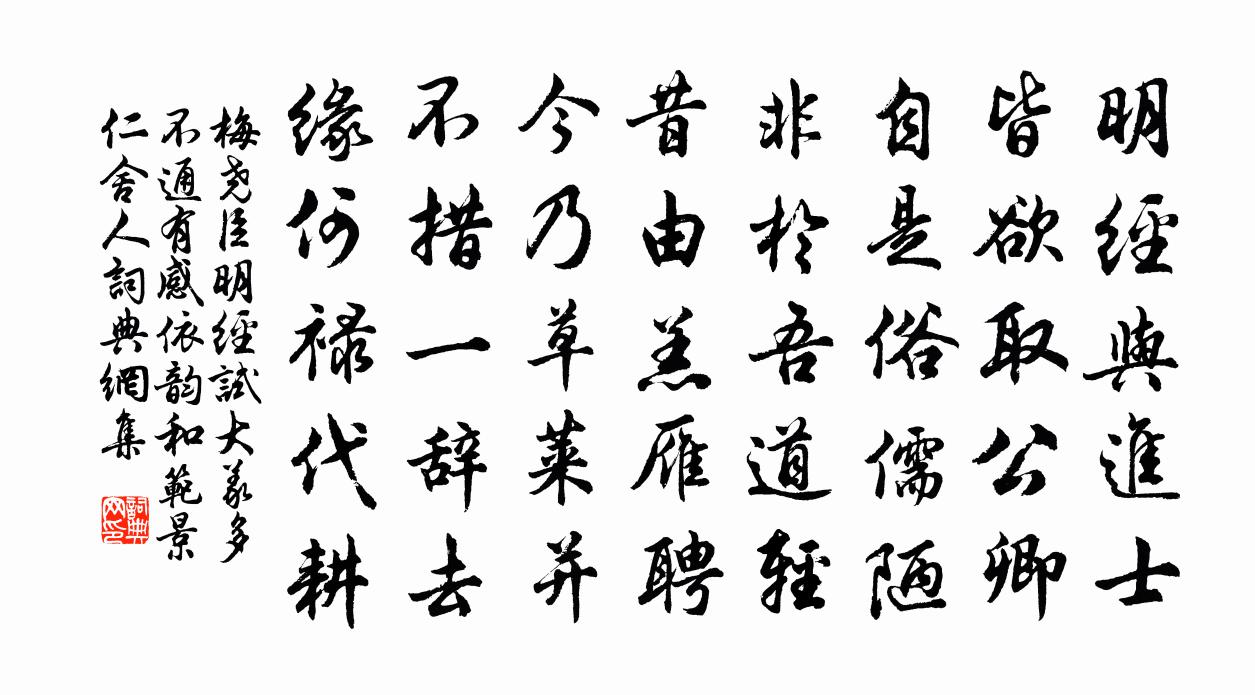 明經與進士
皆欲取公卿
自是俗儒陋
非於吾道輕
昔由羔雁聘
今乃草萊并
不措一辞去
緣何禄代耕
梅尧臣明經試大义多
不通有感依韵和範景
仁舍人詞典網集
詞典
网印